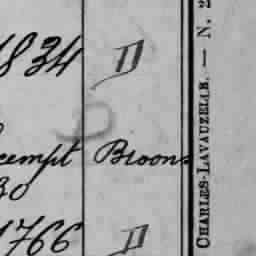 1834 D
exempt Broons
30
1766 D
CHARLES-LAVAUZELLE. — N. 2